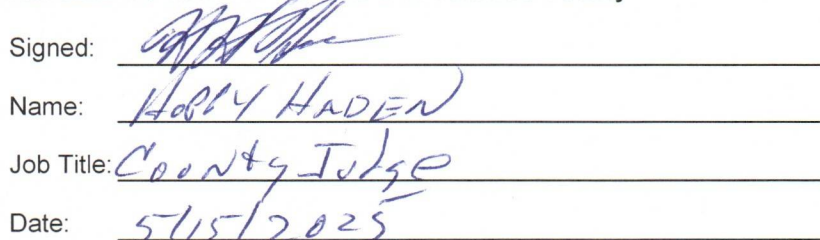 Signed:
Name: HOPPY HADEN
Job Title: County Judge
Date: 5/15/2025